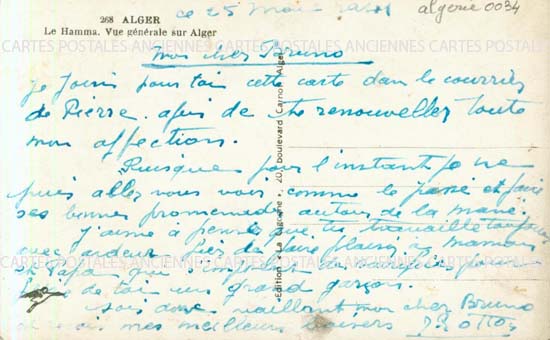 268 ALGER
Le Hamma. Vue générale sur Alger
ce 25 Mai
algerie0034
mon cher Bruno
je joins pour toi cette carte dans le courrier
de Pierre. afin de te renouveller toute
mon affection.
Puisque pour l'instant je ne
puis aller vous voir comme le passé et faire
ses bonnes promenades autour de la mare.
J'aime à penser que tu travaille toujours
avec ardeur faire plaisir à maman
et Papa qui
de toi un grand garçon.
sois donc vaillant mon cher Bruno
et reçois mes meilleurs baisers
Edition "La Cigogne", 20, boulevard Carnot Alger
CARTES POSTALES ANCIENNES CARTES POSTALES ANCIENNES CARTES POSTALES
CARTES POSTALES ANCIENNES CARTES POSTALES ANCIENNES CARTES POSTALES